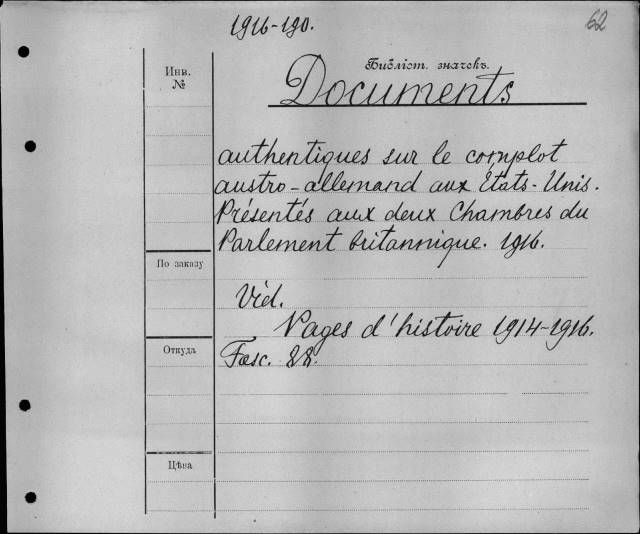 1916-190.
62
Инв.
№
Библіот. значекъ.
Documents
authentiques sur le complot
austro-allemand aux États-Unis.
Présentés aux deux Chambres du
Parlement britannique. 1916.
По заказу
Vid.
Pages d'histoire 1914-1916.
Откуда
Fasc. 88.
Цѣна